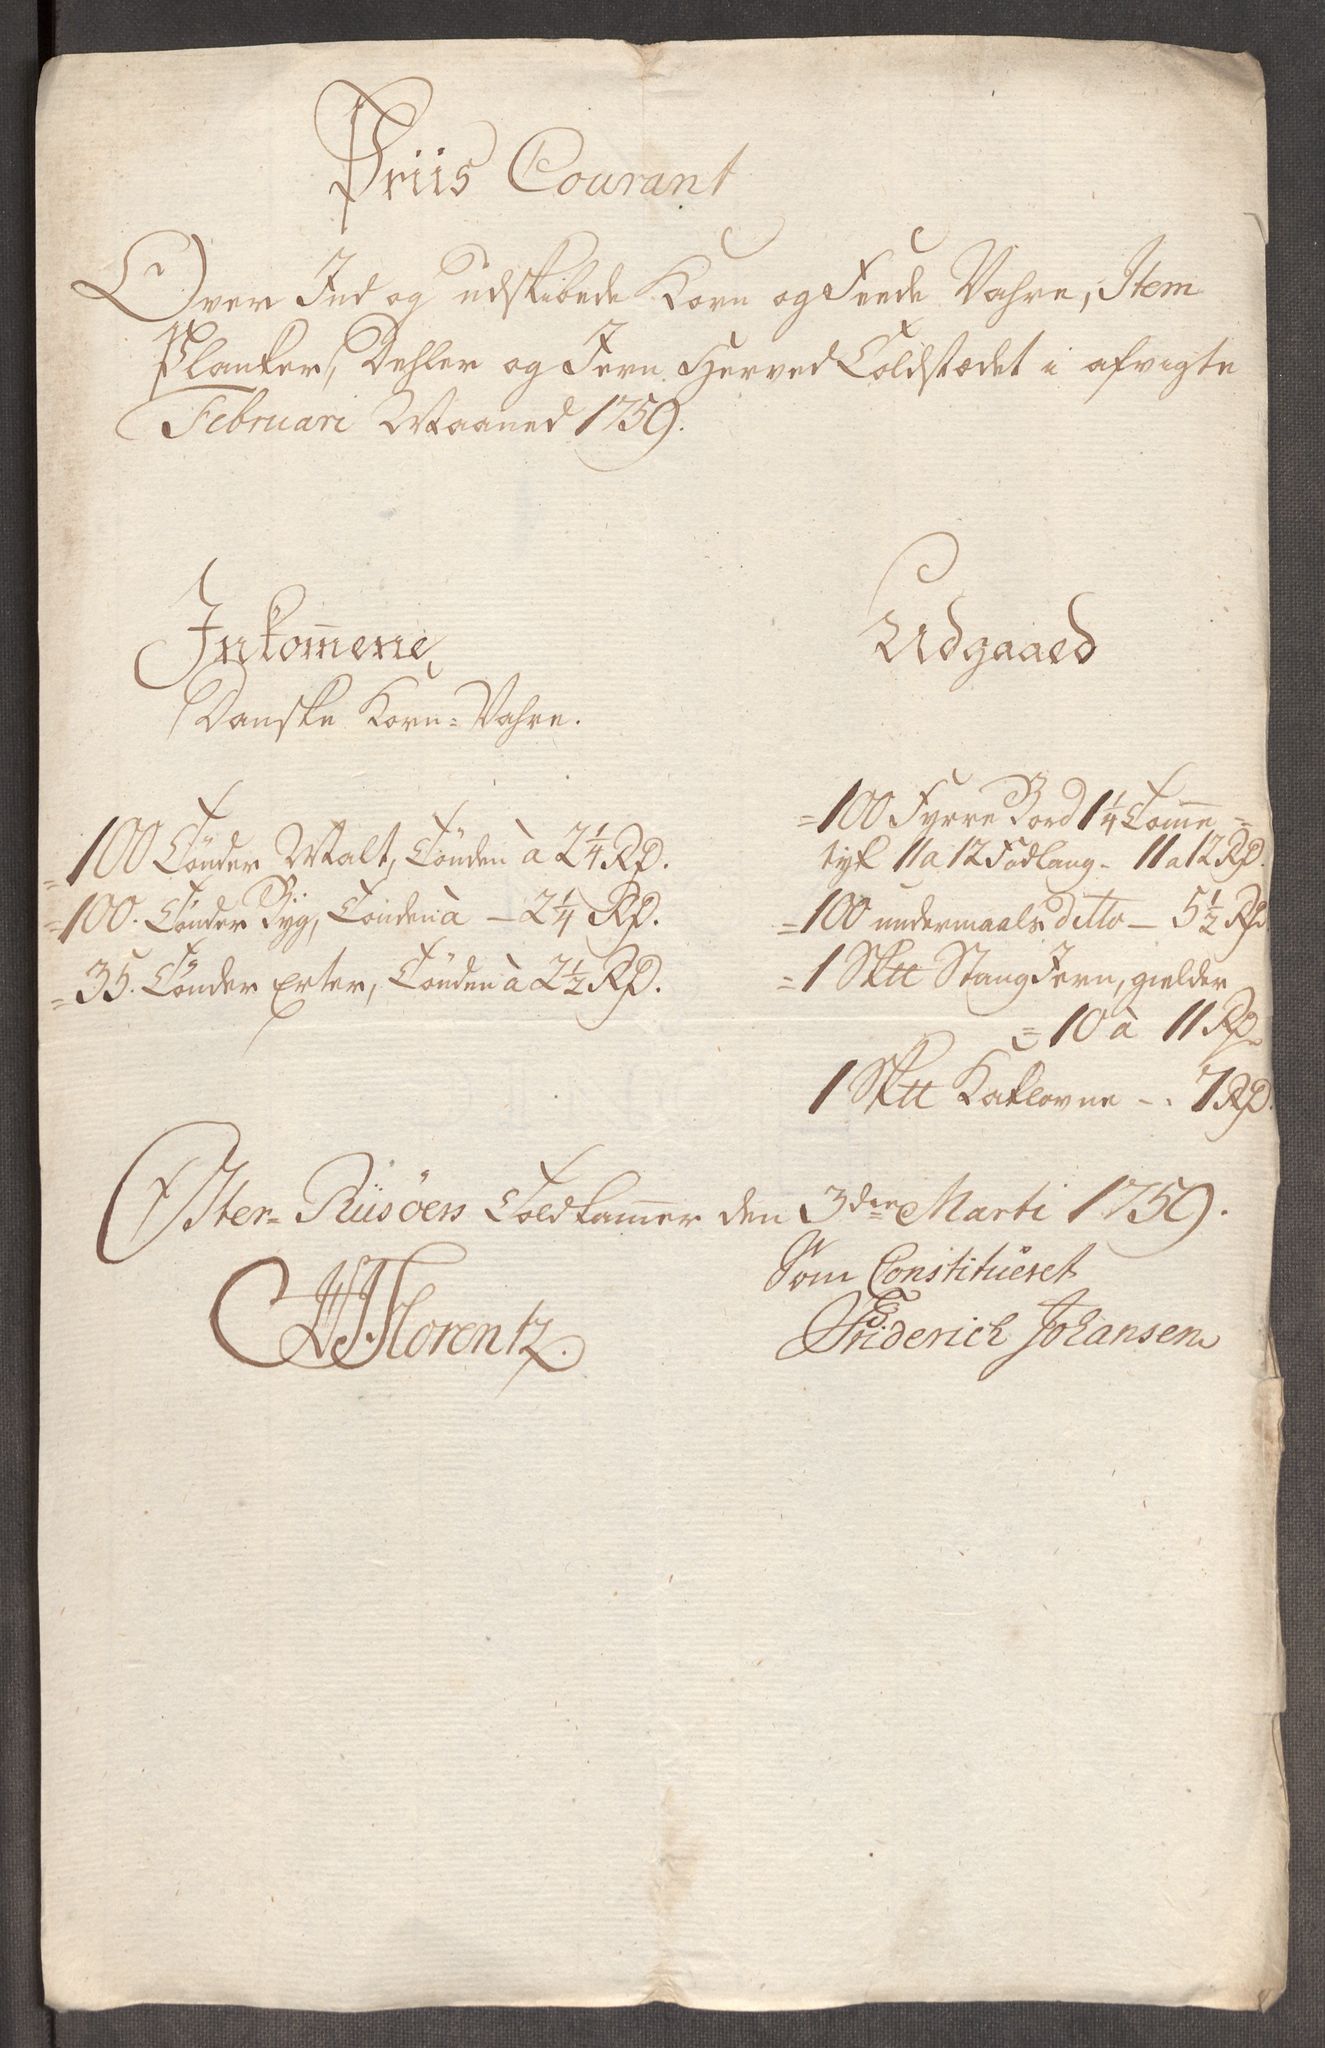 Priis Courant
Over Ind og udskibede Korn og Feede Vahre, Item
Planker, Dehler og Jern Hjerved Toldstædet i afvigte
Februari Maaned 1759.
Inkom̄ene
Danske Korn=Vahre.
=100 Tønder Malt, Tønden à 2 1/4 Rd.
=100. Tønder Byg, Tønden à - 2 1/4 Rd.
=35. Tønder Erter, Tønden à 2 1/2 Rd.
Udgaaed
=100 Fyrre Bord 1 1/4 Tom̄e=
tyk 11 a 12 Fod lang - 11 a 12 Rd.
=100 undermaals ditto - 5 1/2 Rd
=1 Sktt Stang Jern, gielder
=10 à 11 Rd.
1 Sktt Kaklovne - . 7 Rd.
Øster=Riisöers Toldkam̄er den 3den Marti 1759.
Florentz.
Som Constitueret
Friderich Johansen